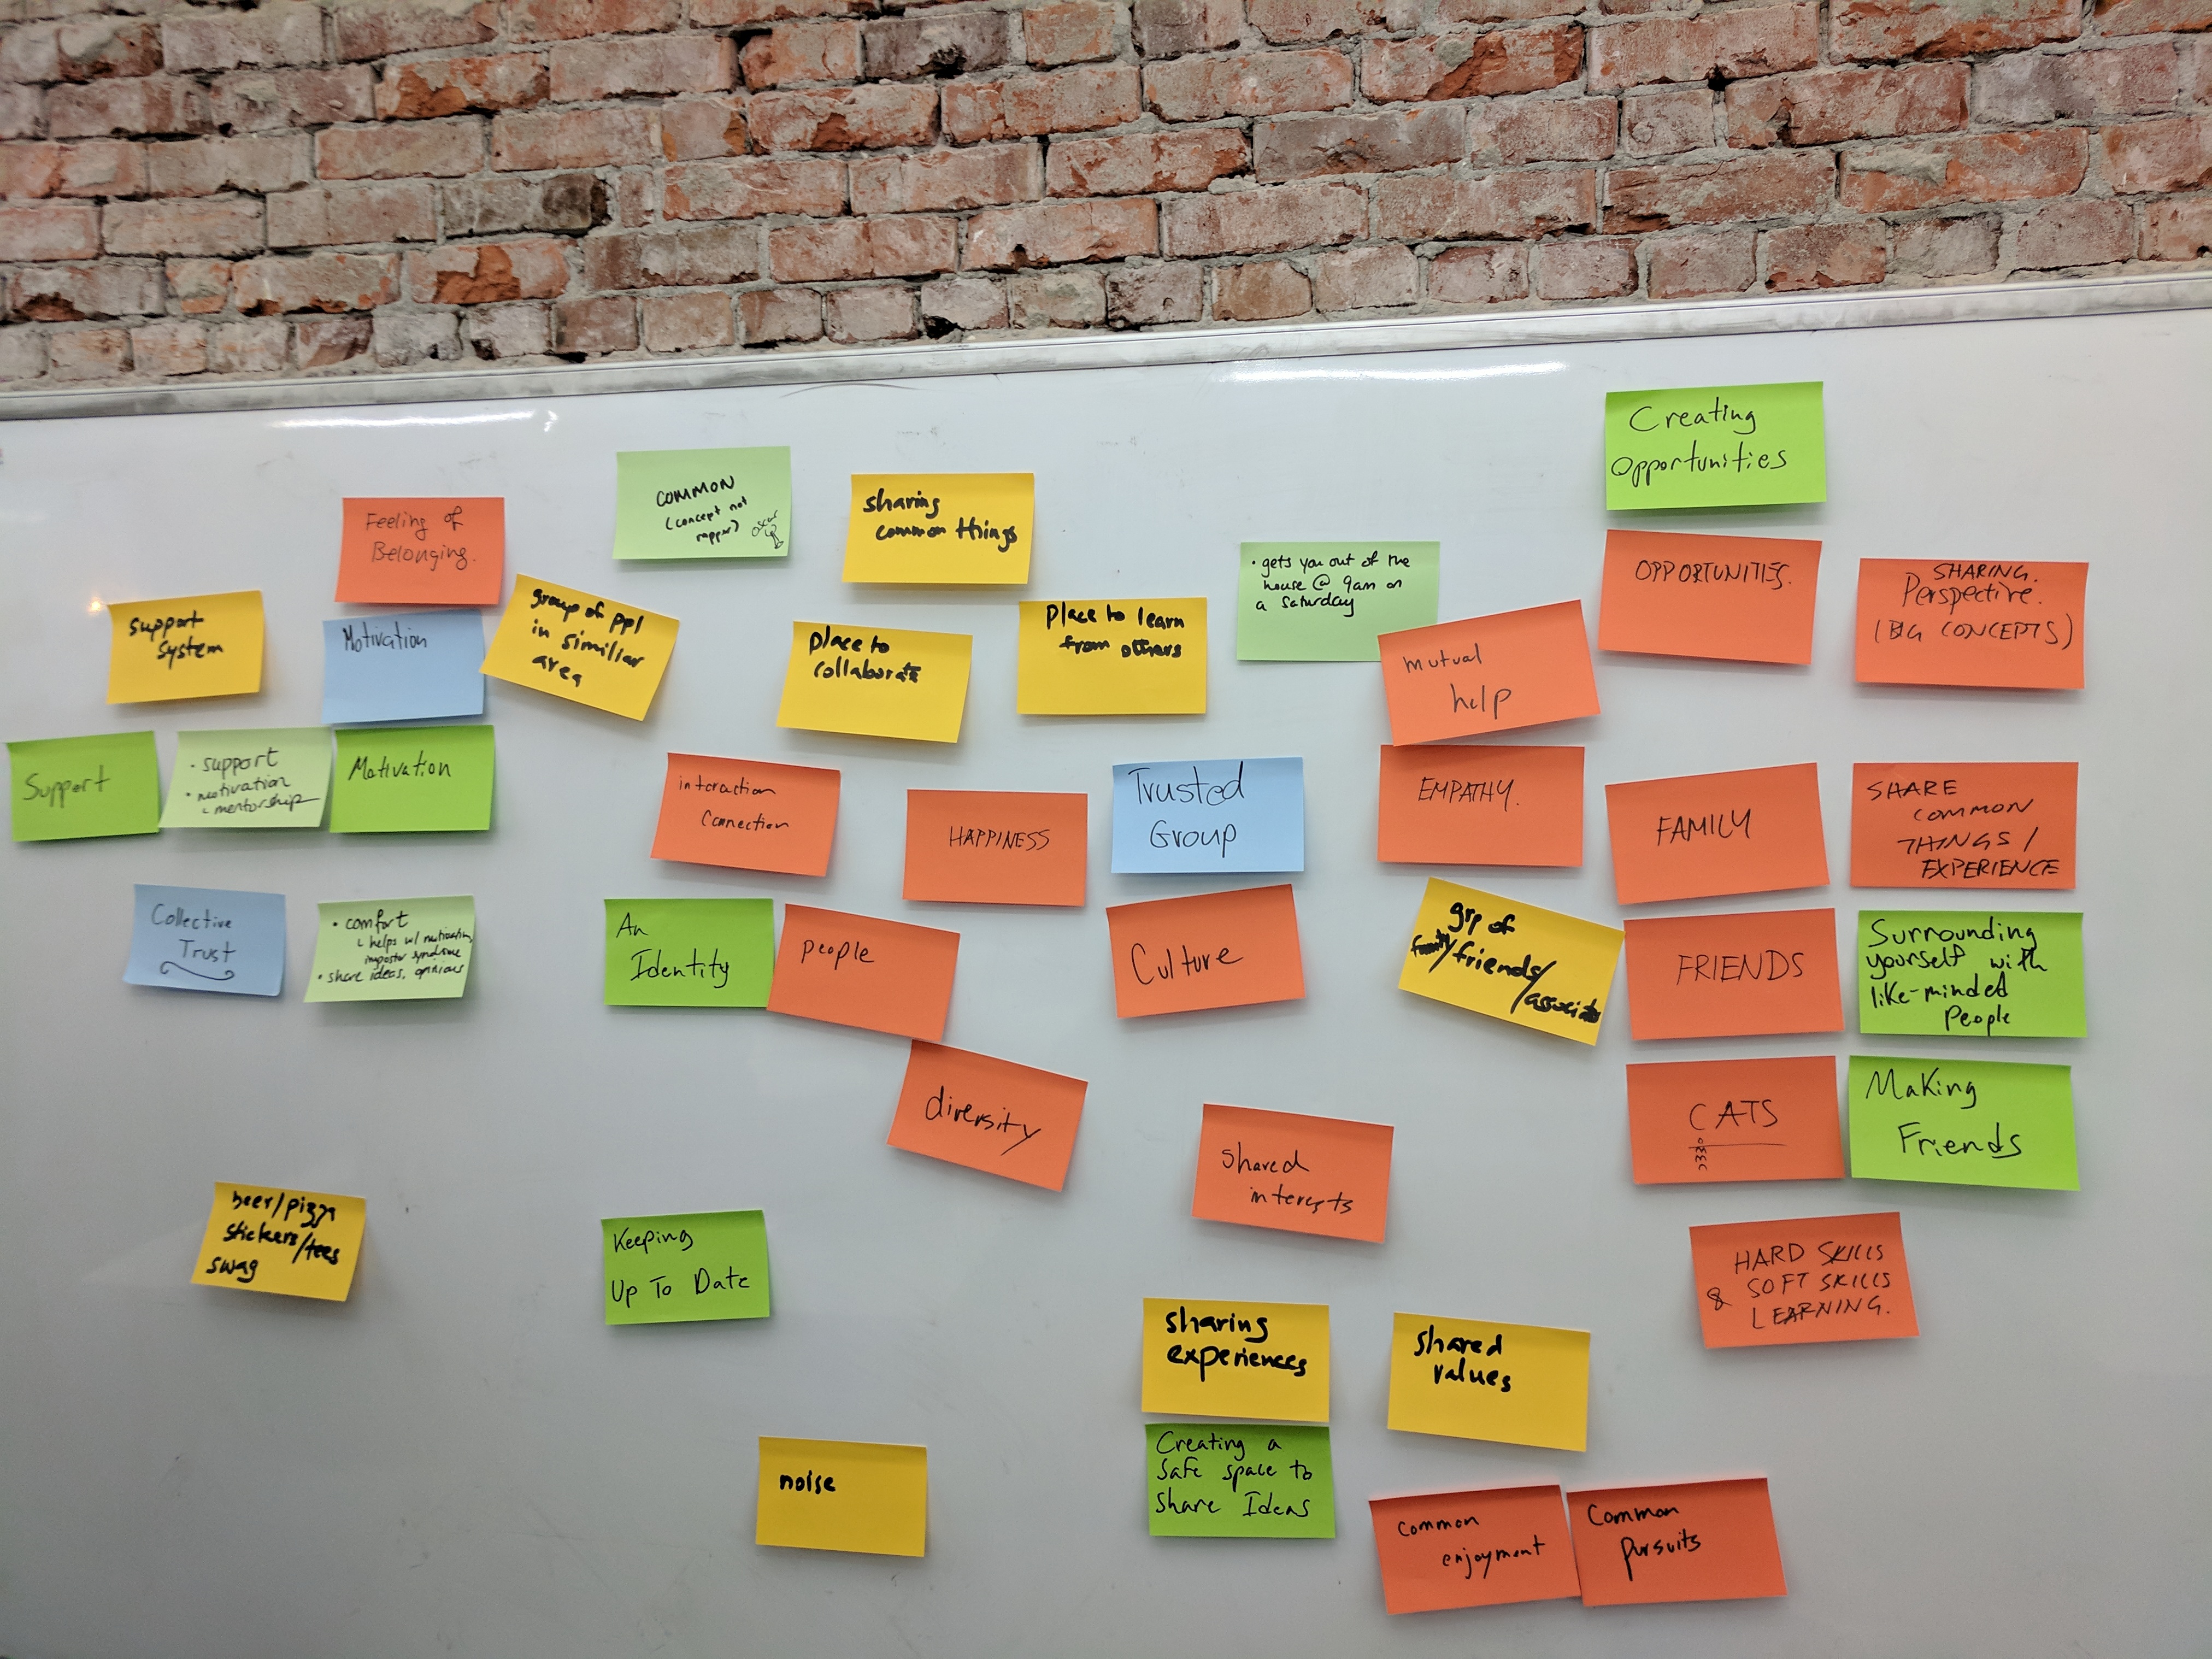 Creating
Opportunities
COMMON
(concept not
rapper)
OSCAR
sharing
common things
Feeling of
Belonging.
gets you out of the
house @ 9am on
a Saturday
OPPORTUNITIES.
SHARING.
Perspective.
(BIG CONCEPTS)
support
system
Motivation
group of ppl
in similiar
area
place to
collaborate
place to learn
from others
mutual
help
Support
• support
• motivation
mentorship
Motivation
interaction
Connection
HAPPINESS
Trusted
Group
EMPATHY.
FAMILY
SHARE
COMMON
THINGS /
EXPERIENCE
Collective
Trust
• comfort
helps w/ motivation,
impostor syndrome
• share ideas, opinions
An
Identity
people
Culture
grp of
family/friends/
/associates
FRIENDS
Surrounding
yourself with
like-minded
People
diversity
Shared
interests
CATS
Making
Friends
beer/pizza
stickers/tees
swag
Keeping
Up To Date
HARD SKILLS
& SOFT SKILLS
LEARNING.
sharing
experiences
shared
values
noise
Creating a
Safe space to
Share Ideas
Common
enjoyment
Common
pursuits